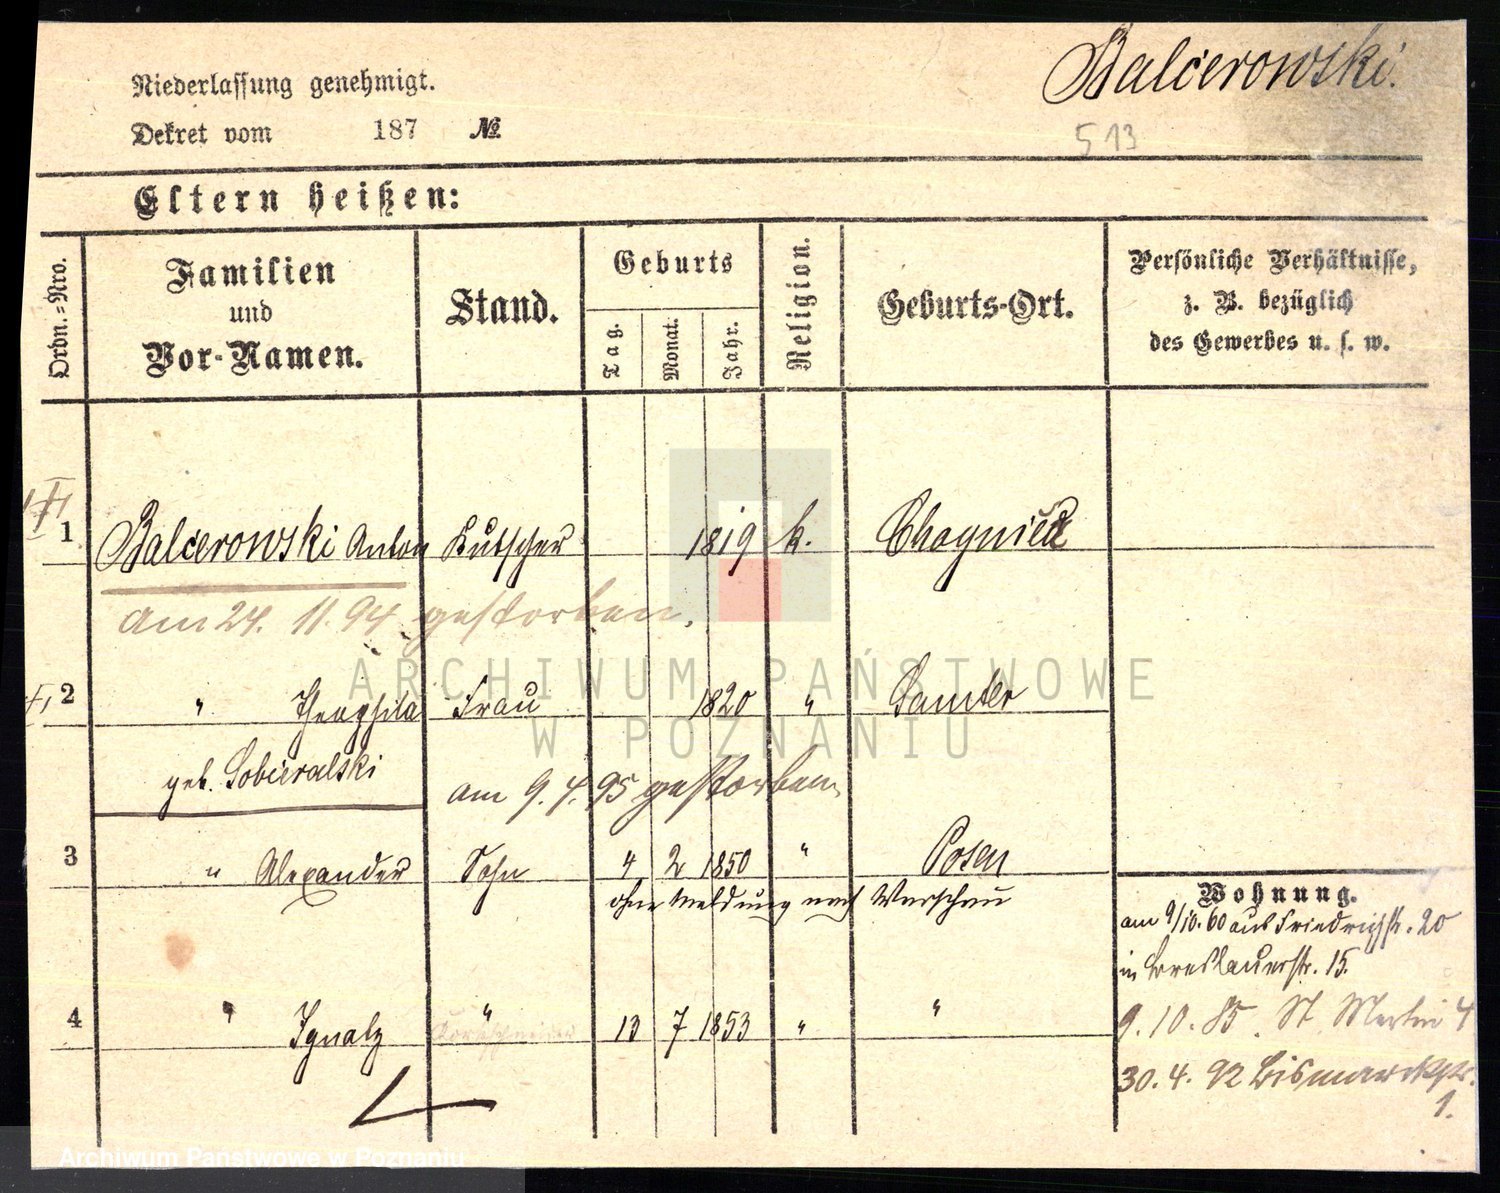 Balcerowski.
Niederlassung genehmigt.
Dekret vom 187 №
513
Eltern heißen:
Ordn.-Nro.
Familien
und
Vor-Namen.
Stand.
Geburts
Tag.
Monat.
Jahr.
Religion.
Geburts-Ort.
Persönliche Verhältnisse,
z. B. bezüglich
des Gewerbes u. s. w.
1 Balcerowski Anton Kutscher 1819 k.
am 24. 11. 94 gestorben.
2 " Theophila Frau 1820 " Samter
geb. Sobieralski
am 9. 4. 95 gestorben
3 " Alexander Sohn 4 2 1850 " Posen
ohne Meldung nach Warschau
Wohnung.
am 9/10. 60 aus Friedrichstr. 20
in Breslauerstr. 15.
4 " Ignatz " 13 7 1853 " "
9. 10. 85. St. Martin 4
30. 4. 92 Bismarckstr.
1.
ARCHIWUM PAŃSTWOWE
W POZNANIU
Archiwum Państwowe w Poznaniu